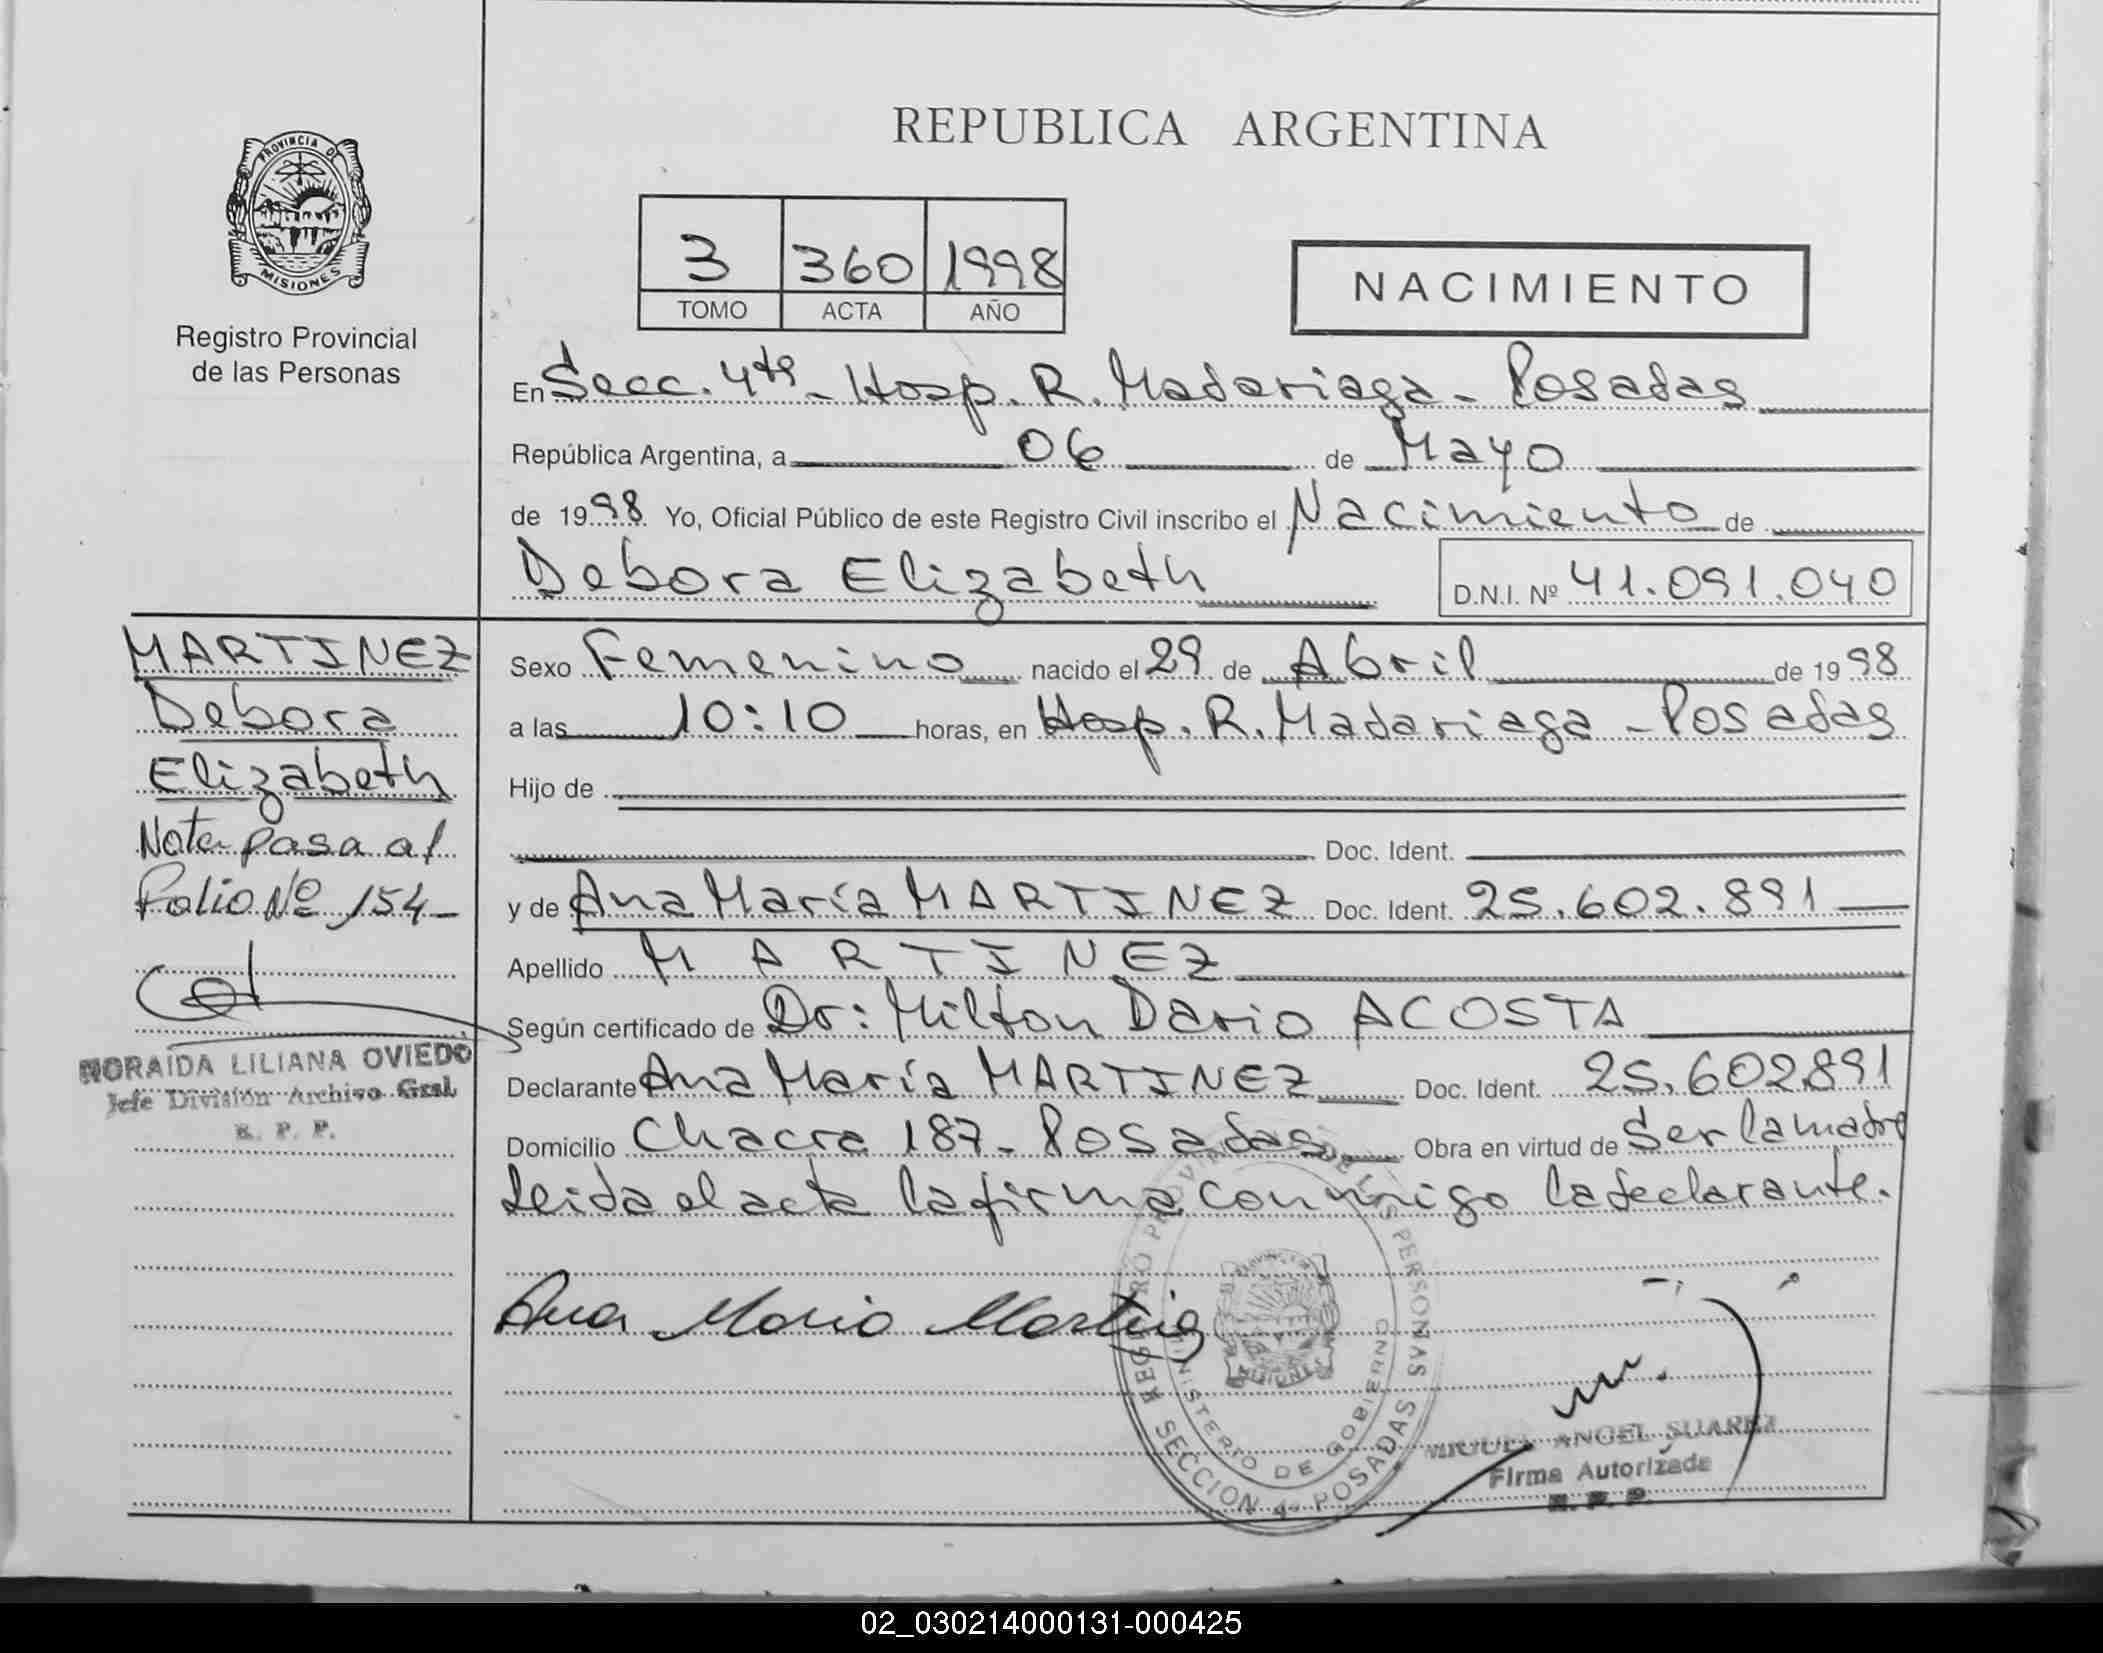 REPUBLICA ARGENTINA
PROVINCIA DE
MISIONES
Registro Provincial
de las Personas
3 360 1998
TOMO ACTA AÑO
NACIMIENTO
En Secc. 4ta - Hosp. R. Madariaga - Posadas
República Argentina, a 06 de Mayo
de 1998 Yo, Oficial Público de este Registro Civil inscribo el Nacimiento de
Debora Elizabeth D.N.I. Nº 41.091.040
MARTINEZ
Debora
Elizabeth
Nota pasa al
Folio Nº 154-
NORAIDA LILIANA OVIEDO
Jefe División Archivo Gral.
R. P. P.
Sexo Femenino nacido el 29 de Abril de 1998
a las 10:10 horas, en Hosp. R. Madariaga - Posadas
Hijo de
Doc. Ident.
y de Ana María MARTINEZ Doc. Ident. 25.602.891
Apellido MARTINEZ
Según certificado de Dr: Milton Dario ACOSTA
Declarante Ana María MARTINEZ Doc. Ident. 25.602.891
Domicilio Chacra 187 - Posadas Obra en virtud de Ser la madre
Leida el acta la firma conmigo la declarante.
Ana Maria Martinez
REGISTRO PROVINCIAL DE LAS PERSONAS
MINISTERIO DE GOBIERNO
MISIONES
SECCION 4a POSADAS
MIGUEL ANGEL SUAREZ
Firma Autorizada
R. P. P.
02_030214000131-000425